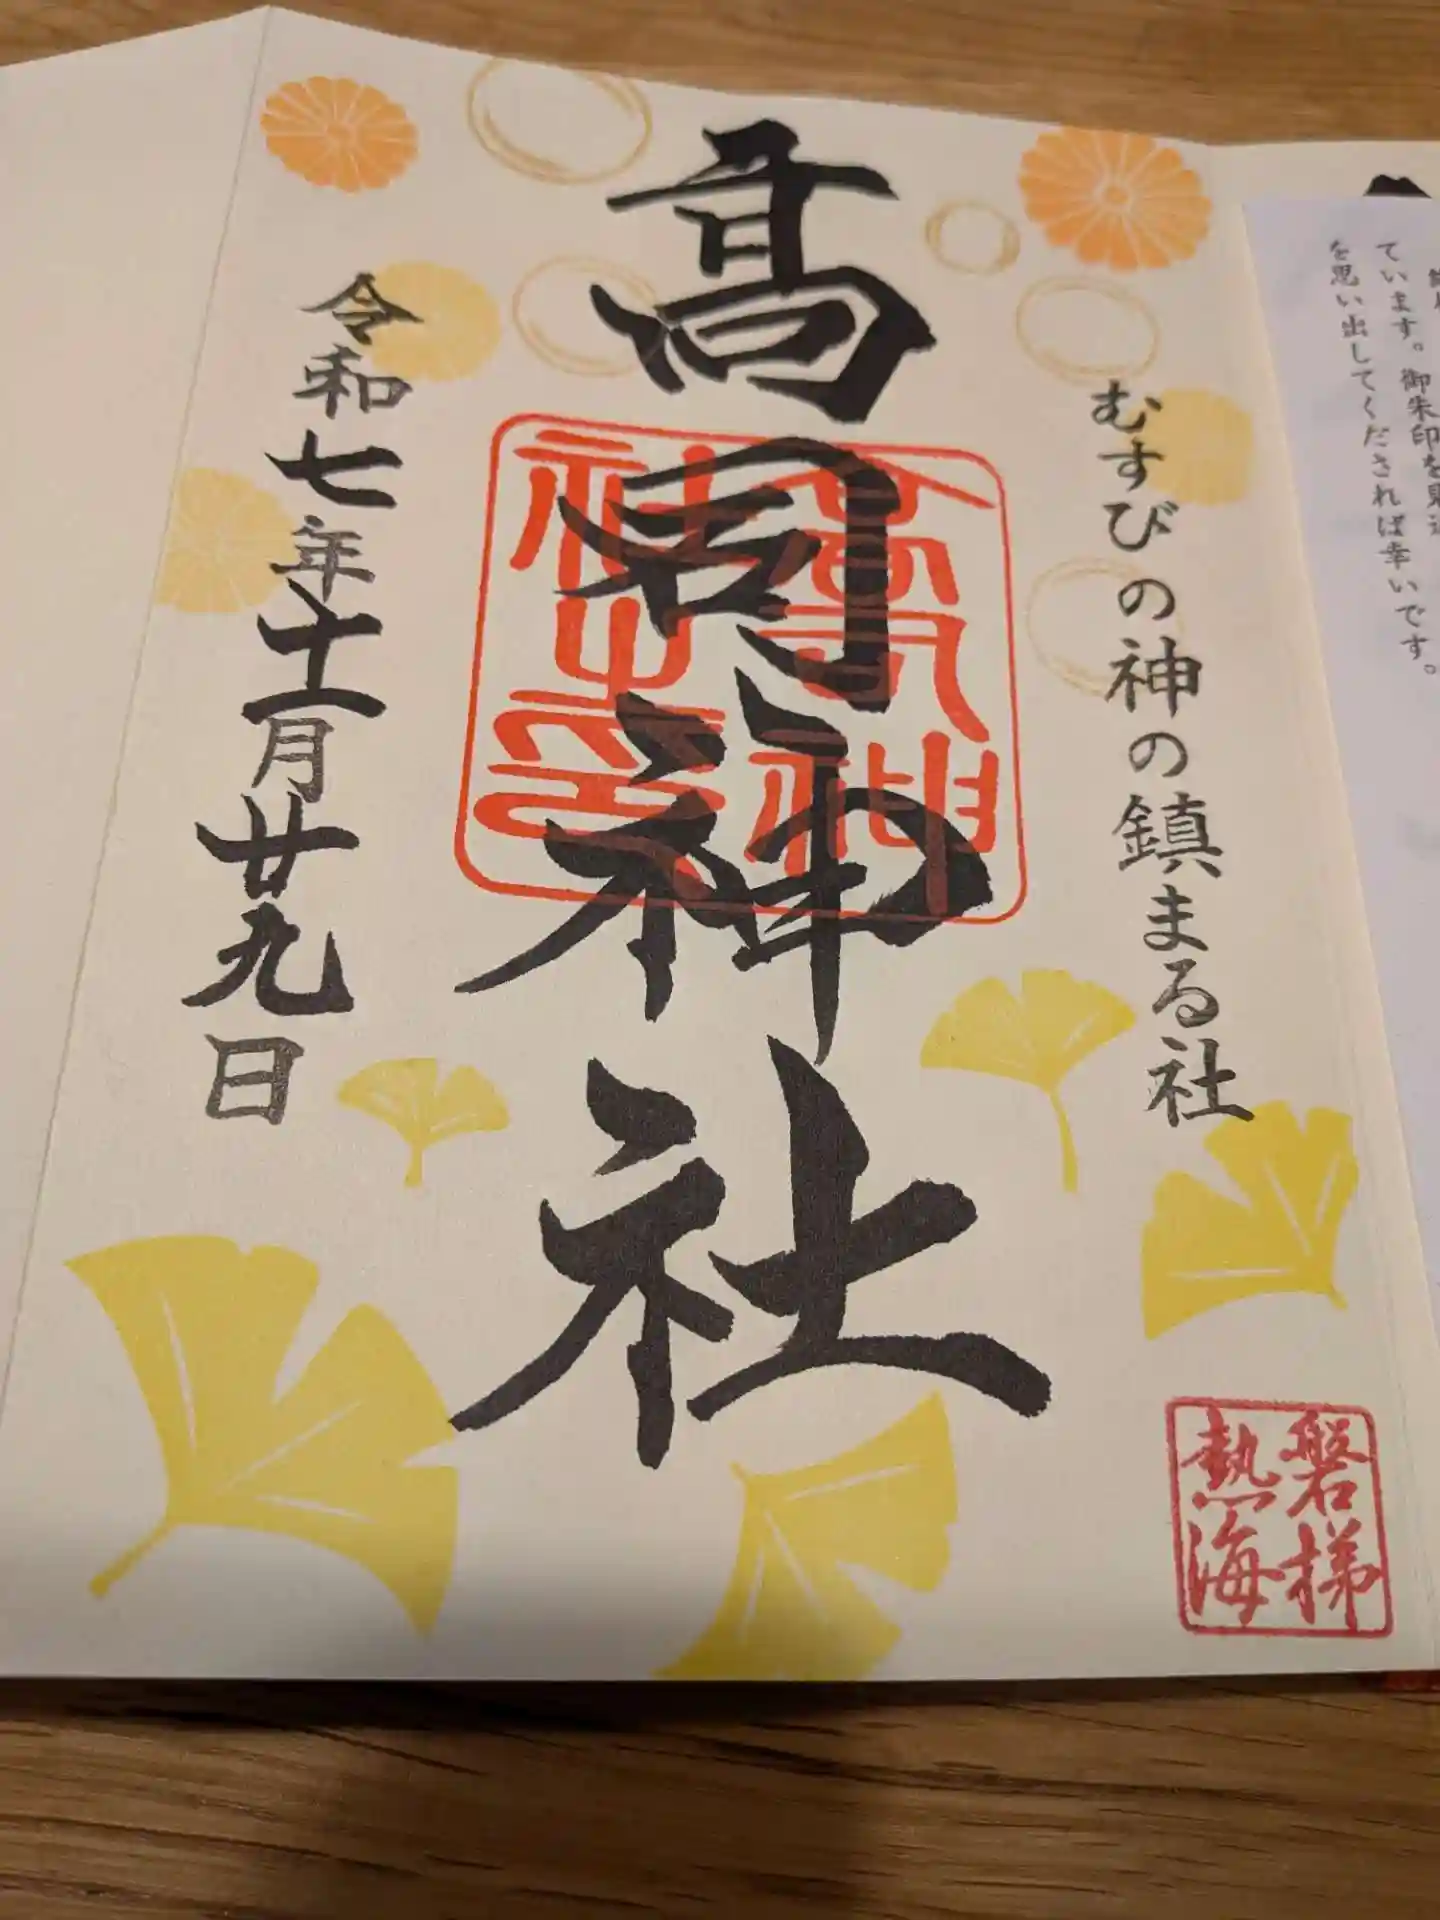 ています。御朱印を
を思い出してくだされば幸いです。
むすびの神の鎮まる社
髙司神社
高司神社之印
令和七年十一月廿九日
磐梯
熱海